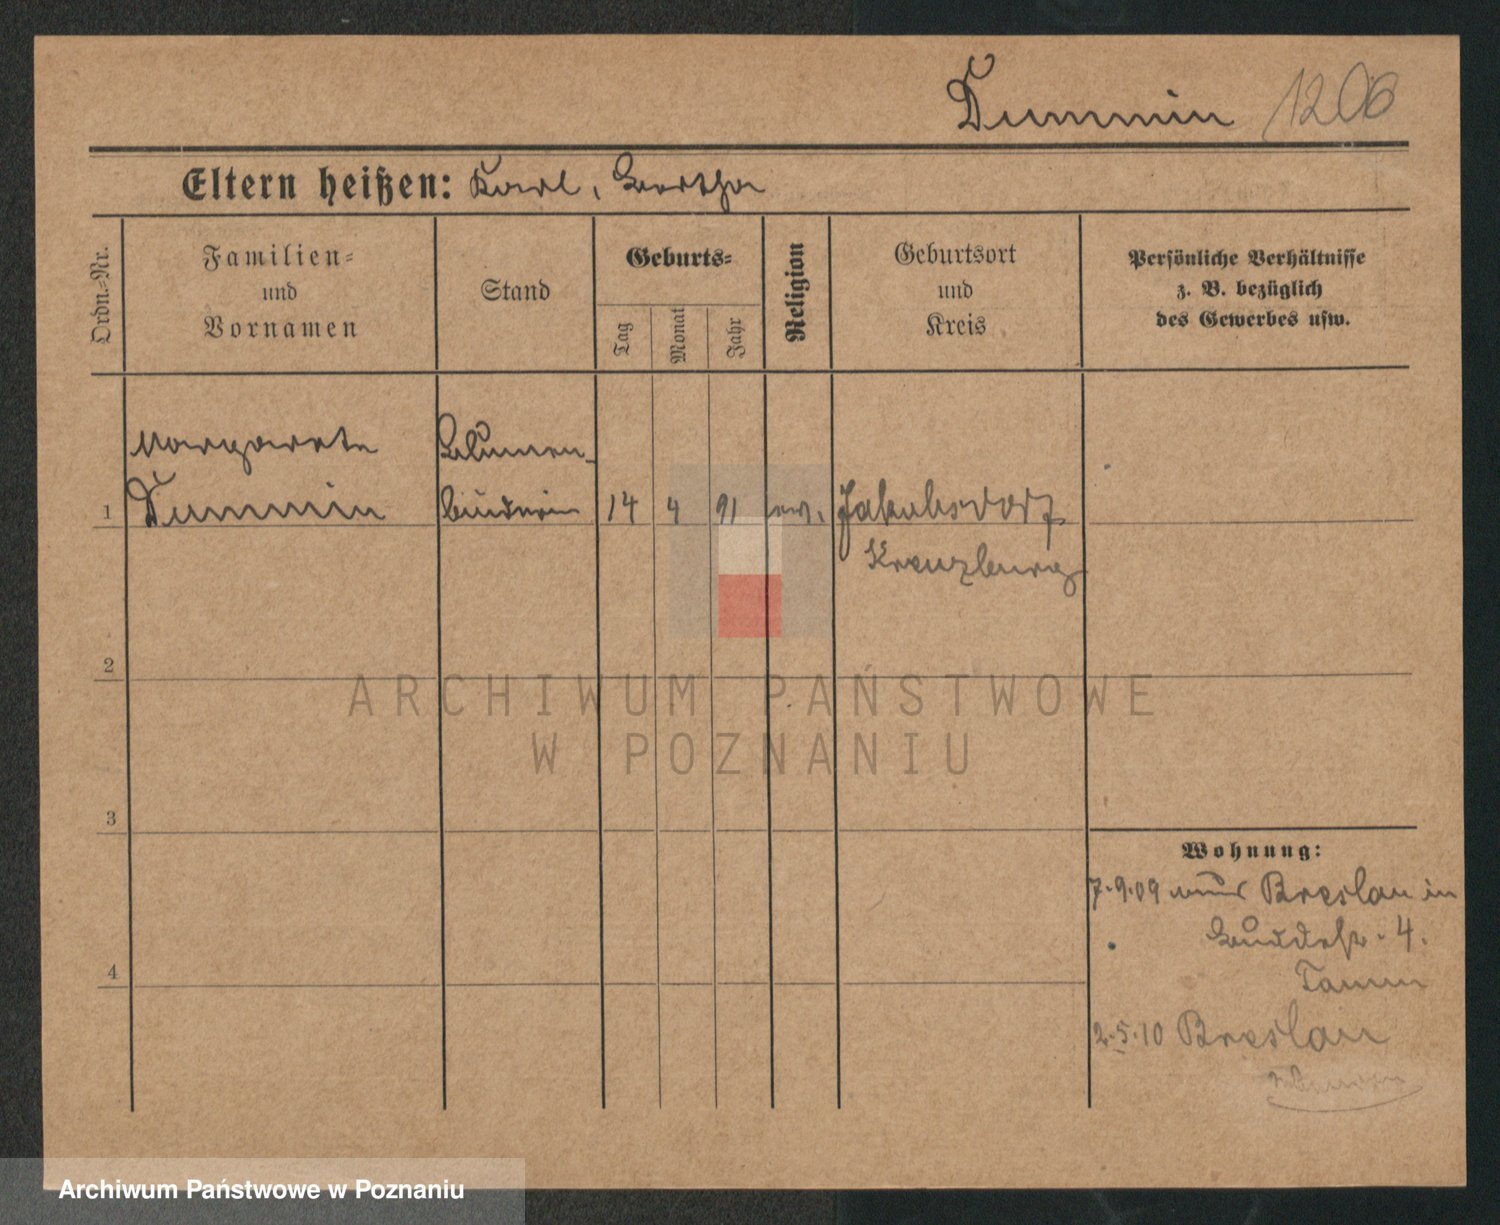 Dummin 1206
Eltern heißen: Karl, Bertha
Ordn.-Nr.
Familien-
und
Vornamen
Stand
Geburts-
Tag
Monat
Jahr
Religion
Geburtsort
und
Kreis
Persönliche Verhältnisse
z. B. bezüglich
des Gewerbes usw.
Margarete Blumen-
1 Dummin binderin 14 4 91 ev. Jakobsdorf
Kreuzburg
2
ARCHIWUM PAŃSTWOWE
W POZNANIU
3
Wohnung:
7.9.09 aus Breslau in
4.
4
2.5.10 Breslau
Archiwum Państwowe w Poznaniu